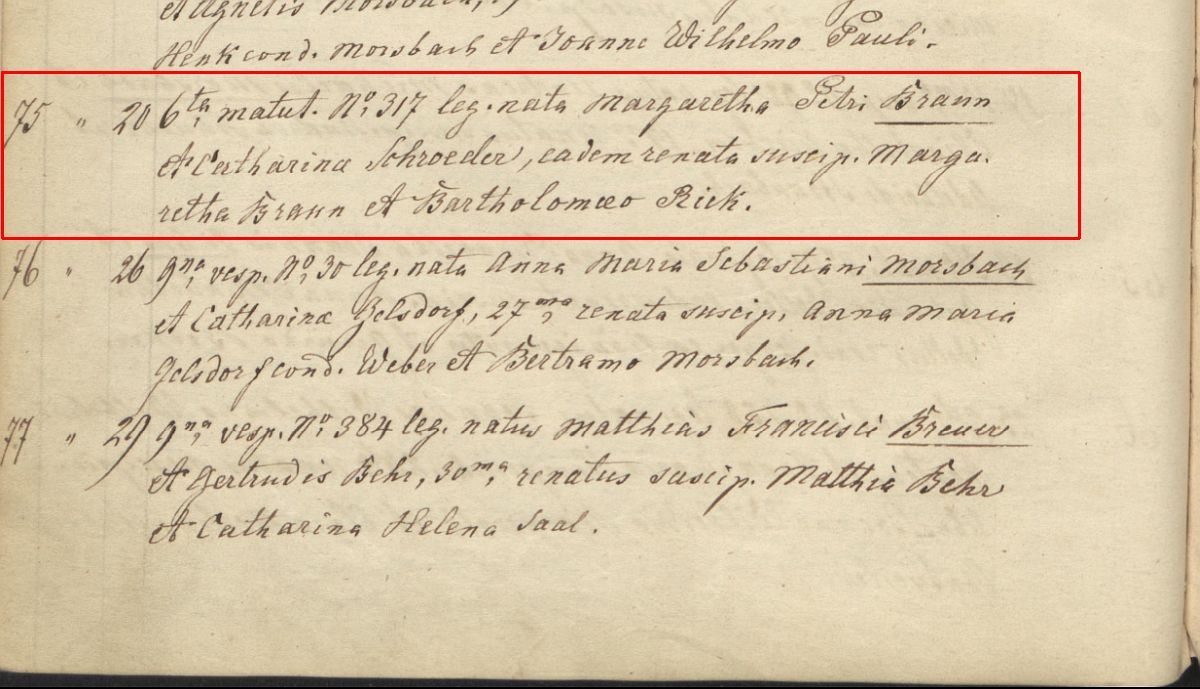 et Agnetis Morsbach,
Henk cond. Morsbach et Joanne Wilhelmo Pauli.
75 " 20 6ta matut. No 317 leg. nata Margaretha Petri Braun
et Catharinæ Schroeder, eadem renata suscip. Marga-
retha Braun et Bartholomæo Rick.
76 " 26 9na vesp. No 30 leg. nata Anna Maria Sebastiani Morsbach
et Catharinæ Gelsdorf, 27ma renata suscip. Anna Maria
Gelsdorf cond. Weber et Bertramo Morsbach.
77 " 29 9na vesp. No 384 leg. natus Matthias Francisci Breuer
et Gertrudis Behr, 30ma renatus suscip. Matthia Behr
et Catharina Helena Saal.